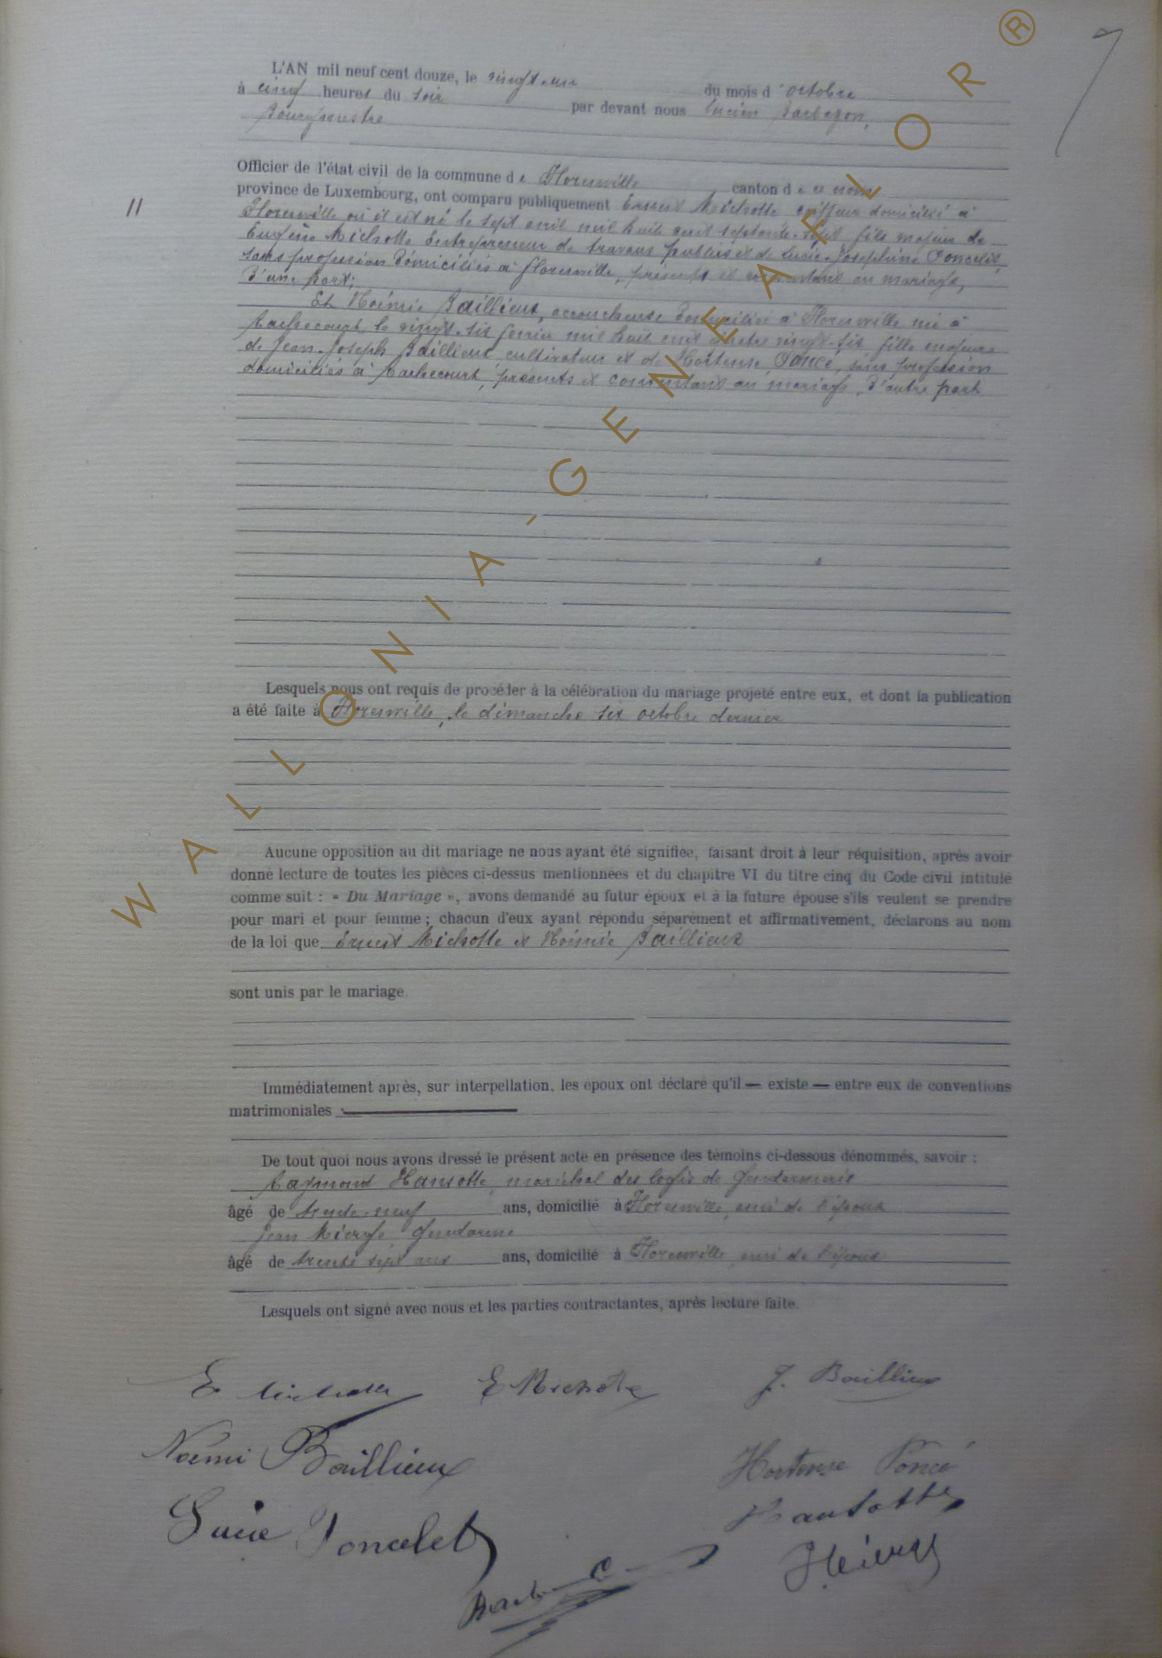 L'AN mil neuf cent douze, le vingt-un du mois d'octobre
à cinq heures du soir par devant nous Lucien Barbazon,
Bourgmestre
Officier de l'état civil de la commune de Florenville canton de ce nom
11
province de Luxembourg, ont comparu publiquement Ernest Michotte coiffeur domicilié à
Florenville où il est né le sept avril mil huit cent septante-sept fils majeur de
Eugène Michotte Entrepreneur de travaux publics et de Lucie-Josephine Poncelet,
sans profession domiciliés à Florenville, présents et consentant au mariage,
d'une part;
Et Noémie Baillieux, accoucheuse domiciliée à Florenville née à
Rachecourt le vingt-six février mil huit cent quatre vingt-six fille majeure
de Jean-Joseph Baillieux cultivateur et de Hortense Poncé, sans profession
domiciliés à Rachecourt, présents et consentant au mariage, d'autre part
Lesquels nous ont requis de procéder à la célébration du mariage projeté entre eux, et dont la publication
a été faite à Florenville, le dimanche six octobre dernier
Aucune opposition au dit mariage ne nous ayant été signifiée, faisant droit à leur réquisition, après avoir
donné lecture de toutes les pièces ci-dessus mentionnées et du chapitre VI du titre cinq du Code civil intitulé
comme suit : « Du Mariage », avons demandé au futur époux et à la future épouse s'ils veulent se prendre
pour mari et pour femme ; chacun d'eux ayant répondu séparément et affirmativement, déclarons au nom
de la loi que Ernest Michotte et Noémie Baillieux
sont unis par le mariage
Immédiatement après, sur interpellation, les époux ont déclaré qu'il — existe — entre eux de conventions
matrimoniales
De tout quoi nous avons dressé le présent acte en présence des témoins ci-dessous dénommés, savoir :
Raymond Hansotte maréchal des logis de Gendarmerie
âgé de trente-neuf ans, domicilié à Florenville, ami de l'époux
Jean gendarme
âgé de trente sept ans ans, domicilié à Florenville ami de l'époux
Lesquels ont signé avec nous et les parties contractantes, après lecture faite.
E Michotte E Michotte J. Baillieux
Noémi Baillieux Hortense Poncé
Lucie Poncelet Hansotte
WALLONIA-GENEAFLOR®